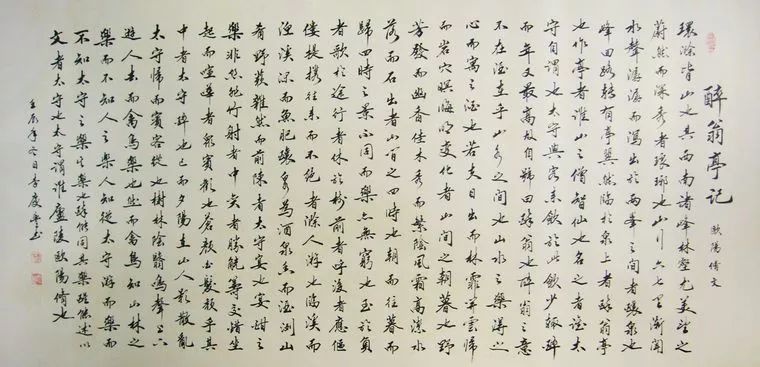 醉翁亭記
歐陽脩文
環滁皆山也其西南諸峰林壑尤美望之
蔚然而深秀者琅琊也山行六七里漸聞
水聲潺潺而瀉出於兩峯之間者釀泉也
峰回路轉有亭翼然臨於泉上者醉翁亭
也作亭者誰山之僧智仙也名之者誰太
守自謂也太守與客來飲於此飲少輒醉
而年又最高故自號曰醉翁也醉翁之意
不在酒在乎山水之間也山水之樂得之
心而寓之酒也若夫日出而林霏開雲歸
而岩穴暝晦明變化者山間之朝暮也野
芳發而幽香佳木秀而繁陰風霜高潔水
落而石出者山間之四時也朝而往暮而
歸四時之景不同而樂亦無窮也至於負
者歌於途行者休於樹前者呼後者應傴
僂提攜往來而不絕者滁人游也臨溪而
漁溪深而魚肥釀泉為酒泉香而酒洌山
肴野蔌雜然而前陳者太守宴也宴酣之
樂非絲非竹射者中奕者勝觥籌交錯坐
起而喧嘩者眾賓歡也蒼顏白髮頹乎其
中者太守醉也已而夕陽在山人影散亂
太守歸而賓客從也樹林陰翳鳴聲上下
遊人去而禽鳥樂也然而禽鳥知山林之
樂而不知人之樂人知從太守游而樂而
不知太守之樂其樂也醉能同其樂醒能述以
文者太守也太守謂誰廬陵歐陽脩也
壬辰年冬日李慶書